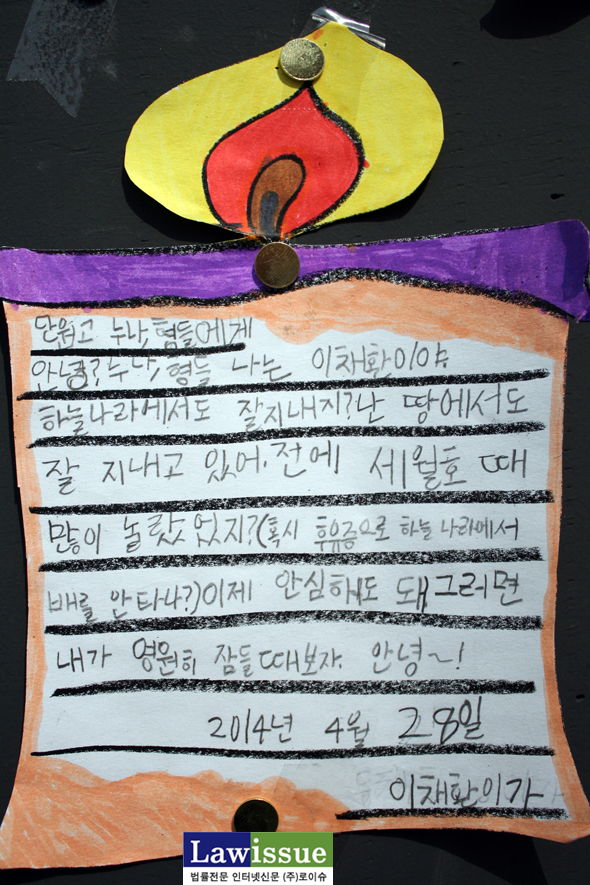 단원고 누나, 형들에게
안녕? 누나, 형들 나는 이채환이야.
하늘나라에서도 잘지내지? 난 땅에서도
잘 지내고 있어. 전에 세월호 때
많이 놀랐었지? (혹시 후유증으로 하늘 나라에서
배를 안 타나?) 이제 안심해도 돼 그러면
내가 영원히 잠들 때 보자. 안녕~!
2014년 4월 28일
이채환이가
Lawissue
법률전문 인터넷신문 (주)로이슈